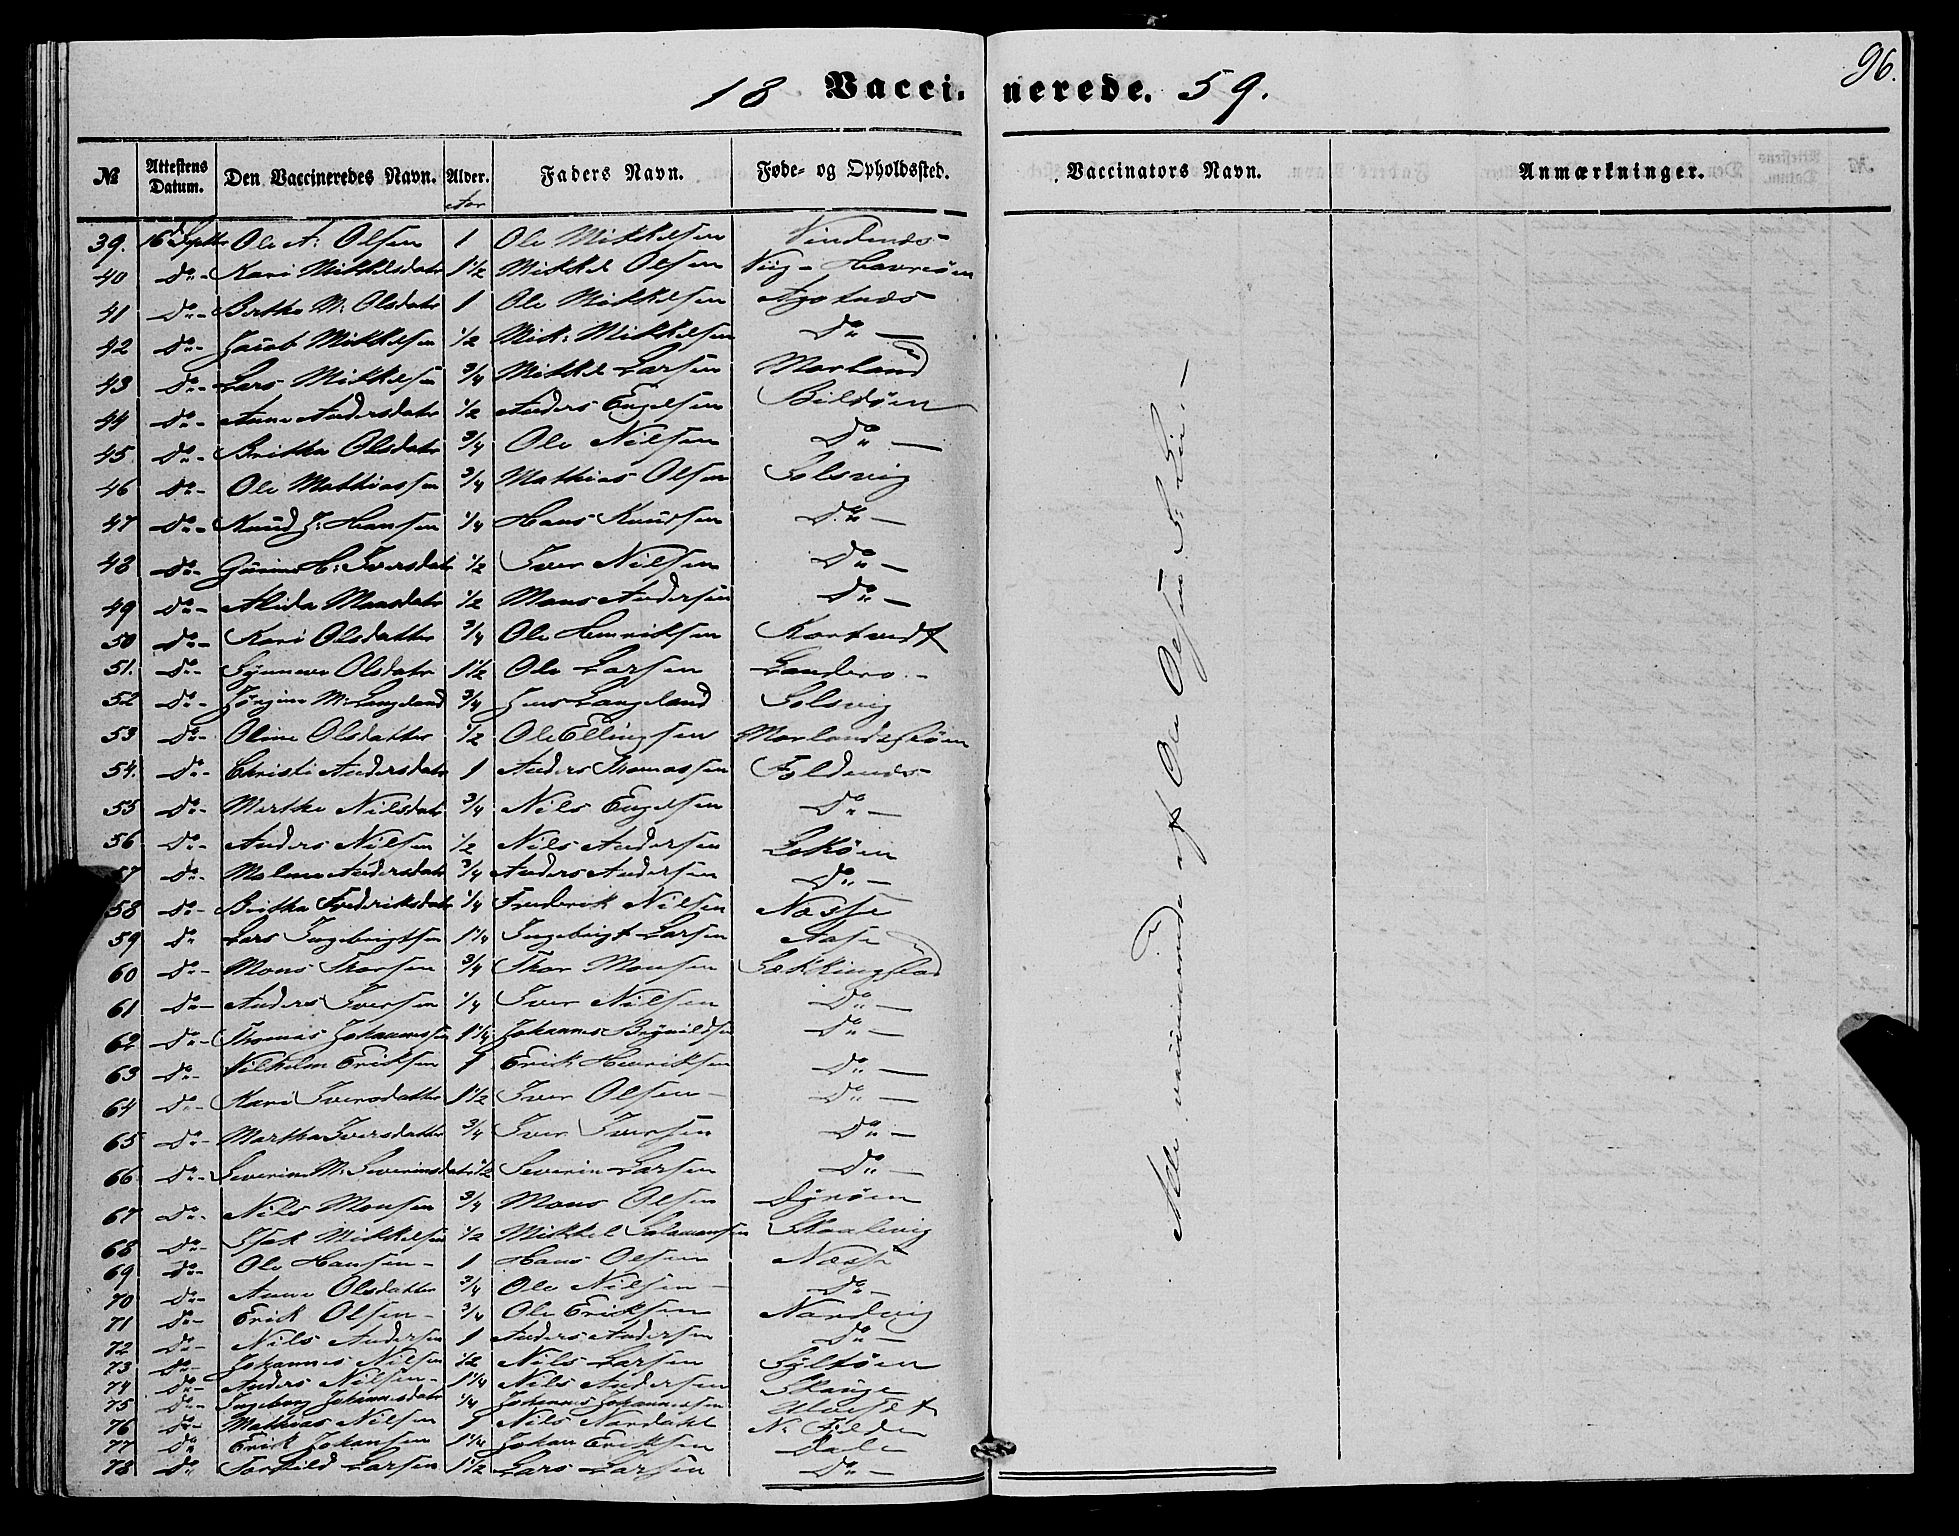 96.
18 Vacci- nerede. 59.
№ Attestens Datum. Den Vaccineredes Navn. Alder. Aar Faders Navn. Føde- og Opholdssted. Vaccinators Navn. Anmærkninger.
39. 16 Septbr Ole A: Olsen 1 Ole Mikkelsen Vindenæs
40 Do- Kari Mikkelsdatr 1 1/2 Mikkel Olsen Viig- Havreøen
41 Do- Berthe M: Olsdatr 1 Ole Mikkelsen Agotnæs
42 Do- Jacob Mikkelsen 1/2 Mik: Mikkelsen Do-
43 Do- Lars Mikkelsen 3/4 Mikkel Larsen Morland
44 Do- Anne Andersdatr 1/2 Anders Engelsen Bildøen
45 Do- Britha Olsdatr 3/4 Ole Nilsen Do-
46 Do- Ole Mathiassen 3/4 Mathias Olsen Solsvig
47 Do- Knud J: Hansen 1/4 Hans Knudsen Do-
48 Do- H: Iversdatr 1/2 Iver Nilsen Do-
49 Do- Alida Monsdatr 1/2 Mons Andersen Do-
50 Do- Kari Olsdatter 3/4 Ole Henriksen Kortvedt
51. Do- Synneve Olsdatr 1 1/2 Ole Larsen Landero
52 Do- Jørgine M: Langeland 3/4 Jens Langeland Solsvig
53 Do- Oline Olsdatter 1/2 Ole Ellingsen Morlandsskøen
54. Do- Christi Andersdatr 1 Anders Thomassen Foldenæs
55 Do- Merthe Nilsdatr 3/4 Nils Engelsen Do-
56 Do- Anders Nilsen 1/2 Nils Andersen Lokøen
57 Do- Malene Andersdatr 3/4 Anders Andersen Do-
58 Do- Britha Frederiksdatr 1/4 Frederik Nilsen Næsse
59 Do Lars Ingebrigtsen 1 1/4 Ingebrigt Larsen Aase
60 Do- Mons Thorsen 3/4 Thor Monsen Sækkingstad
61 Do- Anders Iversen 1/4 Iver Nilsen Do-
62 Do- Thomas Johannessen 1 1/4 Johannes Brynildsen Do-
63 Do- Vilhelm Eriksen 1 Erik Henriksen Do-
64 Do- Kari Iversdatter 1 1/2 Iver Olsen- Do-
65 Do- Martha Iversdatter 3/4 Iver Iversen Do-
66 Do- Severine M: Severinsdatr 1/2 Severin Larsen Do-
67 Do- Nils Monsen 3/4 Mons Olsen Dyrøen
68 Do- Isak Mikkelsen 1/2 Mikkel Salamonsen Skaalevig
69 Do- Ole Hansen- 1 Hans Olsen Næsse
70 Do- Anne Olsdatter 3/4 Ole Nilsen- Do-
71 Do- Erik Olsen- 3/4 Ole Eriksen Nordvig
72 Do- Nils Andersen 1 Anders Andersen Do-
73 Do- Johannes Nilsen 1/2 Nils Larsen Syltøen
74 Do- Anders Nilsen- 1 1/4 Nils Andersen Skauge
75 Do- Ingeborg Johannesdatr 1/4 Johannes Johannessen
76 Do- Mathias Nilsen 1 Nils Nordahl N: Fielde
77 Do Erik Johansen 1 1/4 Johan Eriksen Dale
78 Do Torkild Larsen 1 1/2 Lars Larsen Do-
Alle vaccinerede af Ole Olsen S: Lie.-